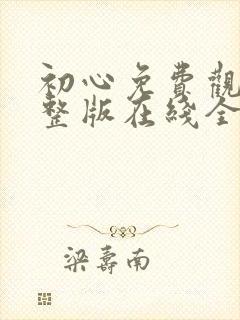 初心免費觀
整版在綫全
梁壽南